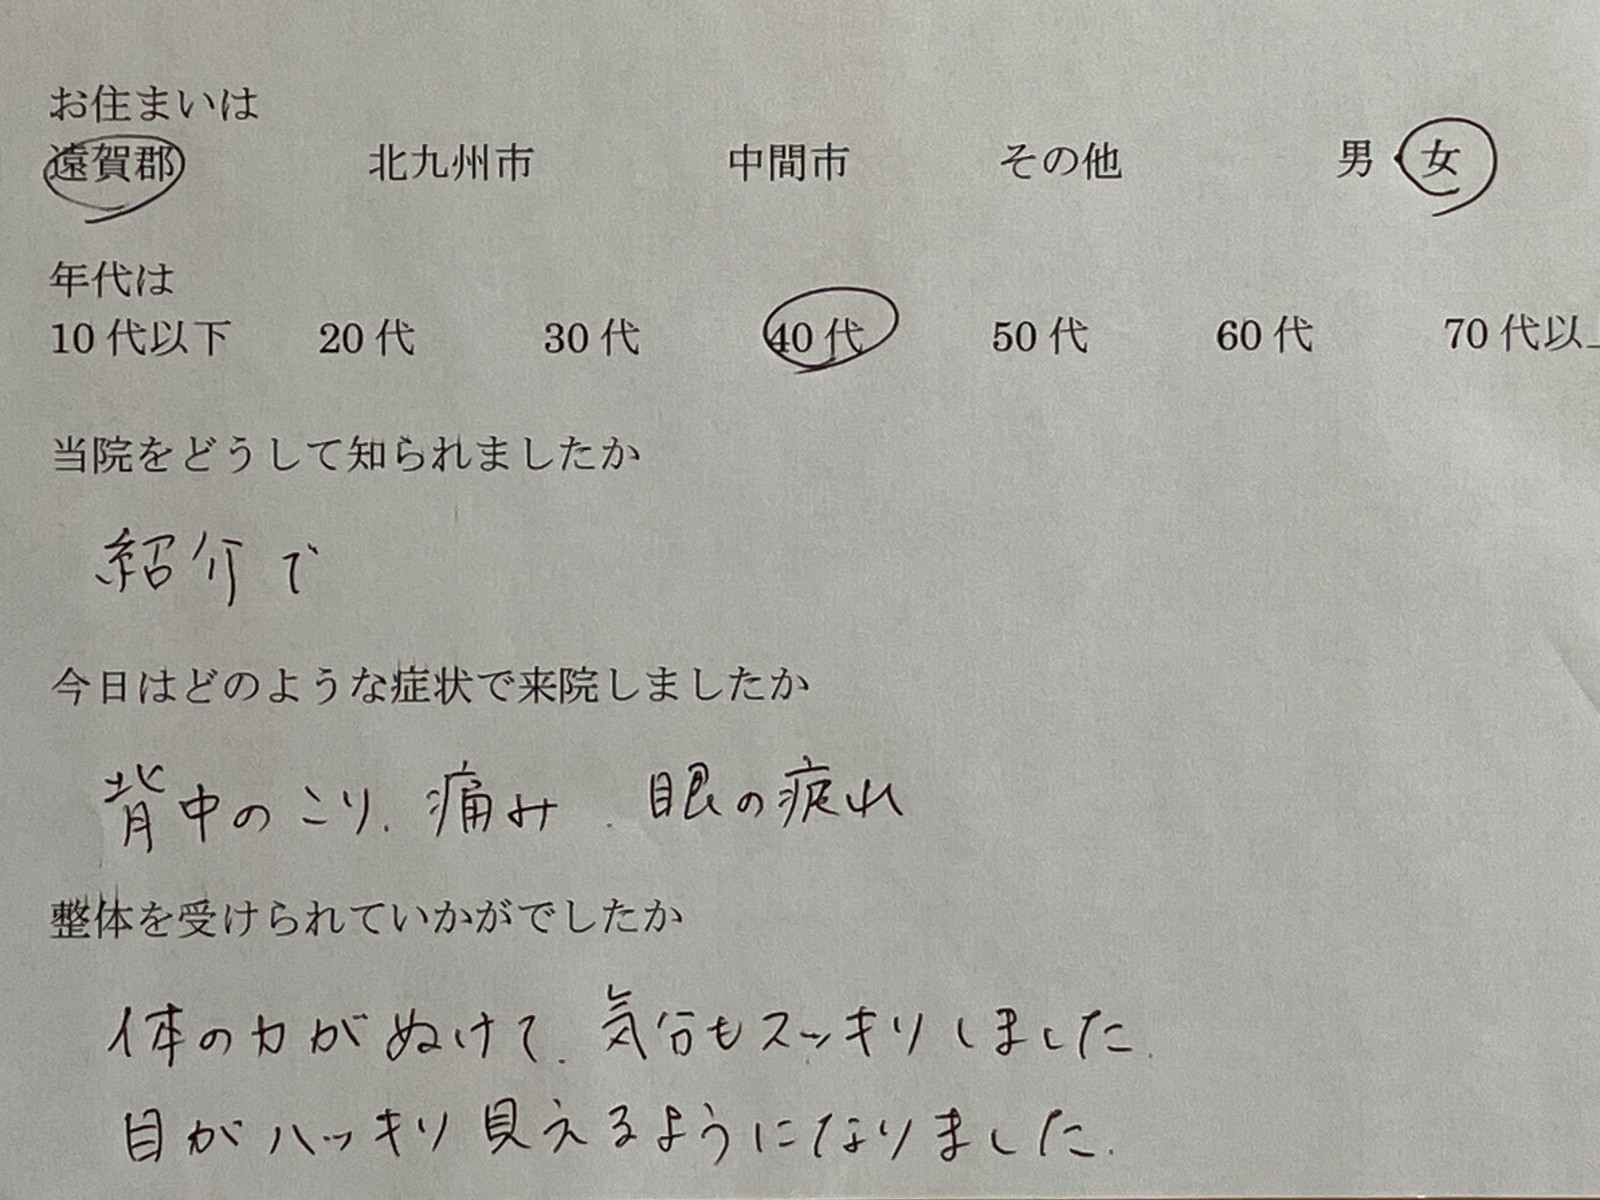 お住まいは
遠賀郡 北九州市 中間市 その他 男・女
年代は
10代以下 20代 30代 40代 50代 60代 70代以
当院をどうして知られましたか
紹介で
今日はどのような症状で来院しましたか
背中のこり、痛み、眼の疲れ
整体を受けられていかがでしたか
体の力がぬけて、気分もスッキリしました。
目がハッキリ見えるようになりました。